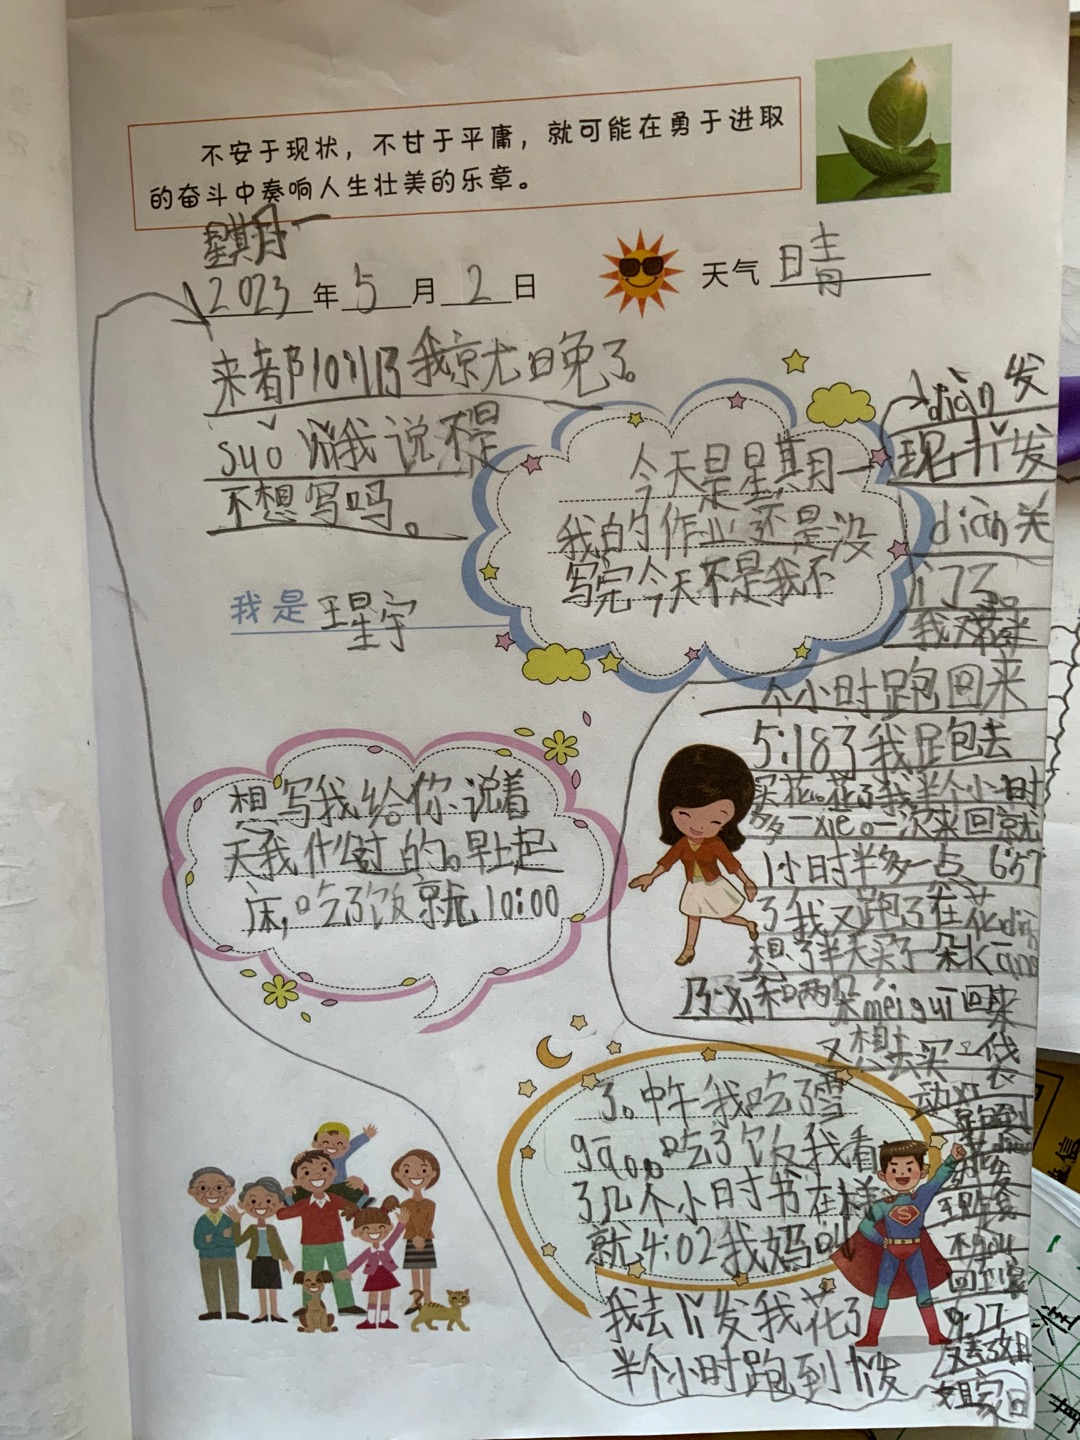 不安于现状，不甘于平庸，就可能在勇于进取
的奋斗中奏响人生壮美的乐章。
星期一
2023年5月2日
天气 晴
今天是星期一
我的作业还是没
写完今天不是我不
想写我给你说着
天我什么过的。早上起
床，吃了饭就10:00
了。中午我吃了雪
gāo。吃了饭我看
了几个小时书在样
就4:02我妈叫
我去 发我花了
半个小时跑到 发
diàn 发
现 发
diàn关
门了。
我 半
个小时跑回来
5:18了我跑去
买花。花了我半个小时
多一xiē。一次来回就
1小时半多一点 6:57
了我又跑了在花diàn
想了半天买了一朵kāng
乃xī和两朵méi guī回来
又想去买一袋
动
不
回到家
9:17
姐家
来都10:11了我就太晚了。
suǒ 我说不是
不想写吗。
我是 王星宇